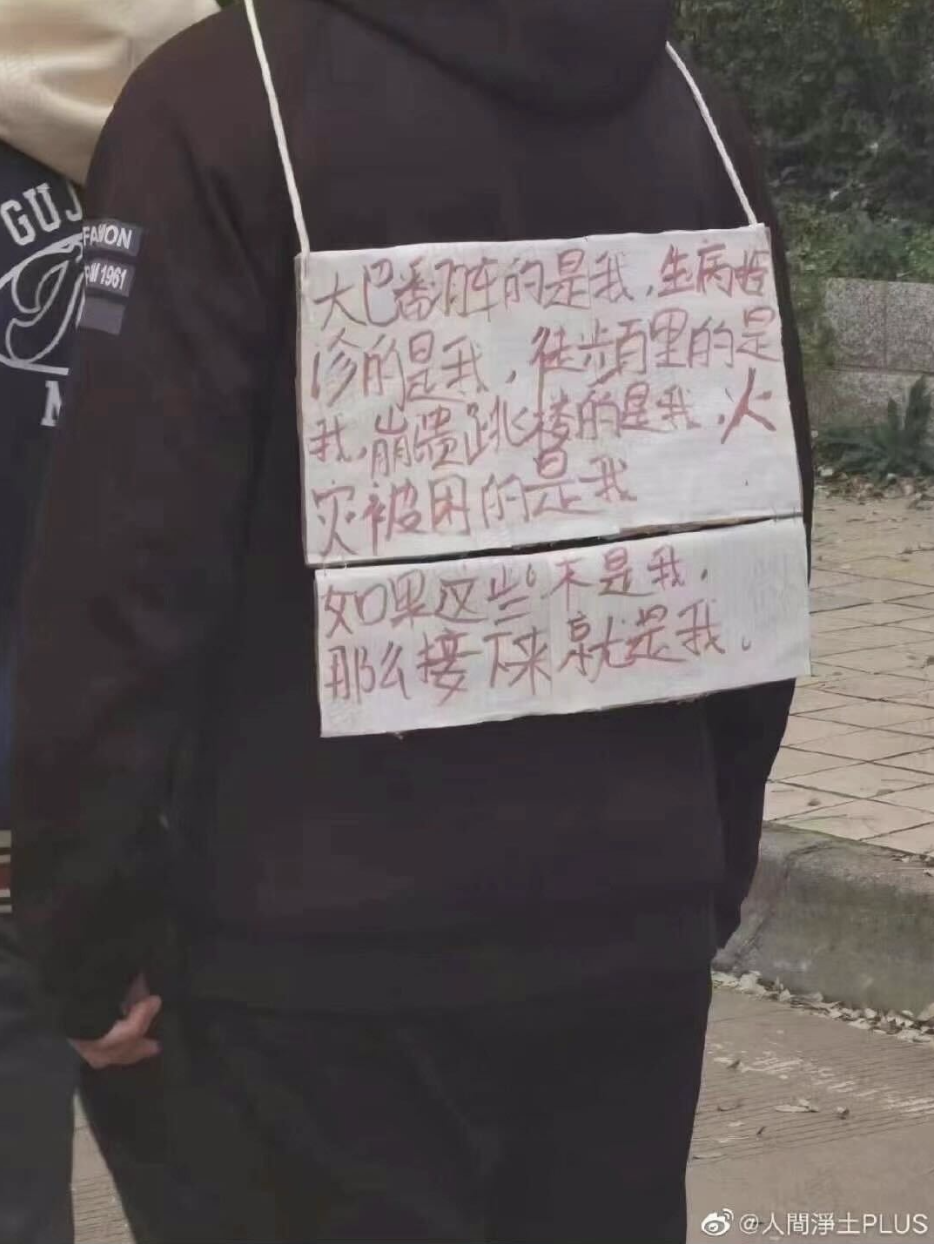 GUJ
FA ION
RM 1961
大巴翻车的是我，生病拒
诊的是我，徒步百里的是
我，崩溃跳楼的是我，火
灾被困的是我
如果这些都不是我，
那么接下来就是我。
@人間淨土PLUS